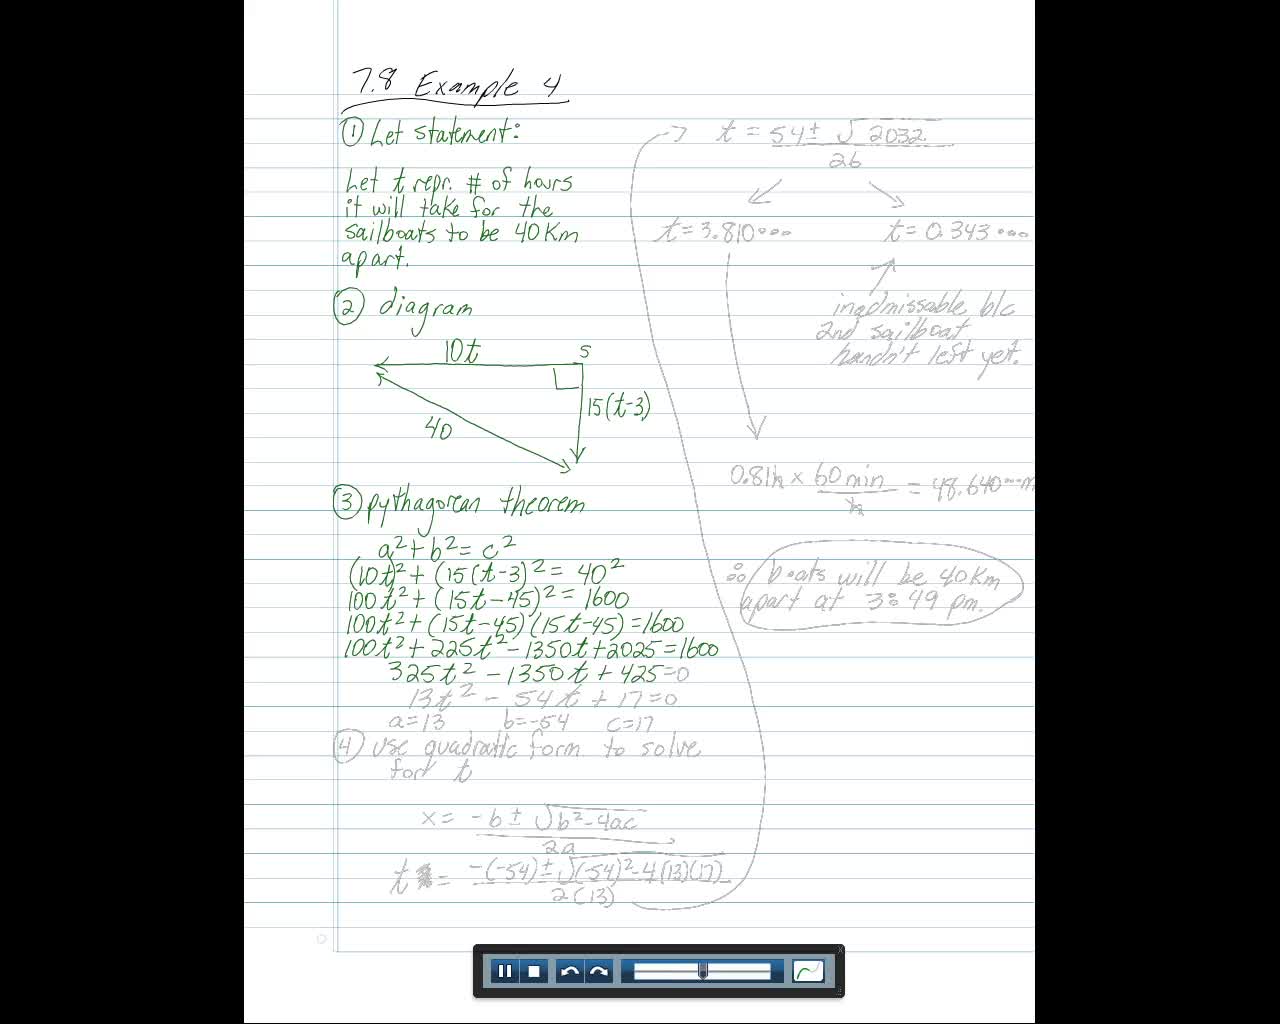 7.8 Example 4
① Let statement:
Let t repr. # of hours
it will take for the
sailboats to be 40 Km
apart.
② diagram
10t
S
15(t-3)
40
③ pythagorean theorem
a² + b² = c²
(10t)² + (15(t-3)² = 40²
100t² + (15t-45)² = 1600
100t² + (15t-45)(15t-45) = 1600
100t² + 225t² - 1350t + 2025 = 1600
325t² - 1350t + 425 = 0
13t² - 54t + 17 = 0
a = 13 b = -54 c = 17
④ use quadratic form to solve
for t
x = -b ± √b² - 4ac
2a
t = -(-54) ± √(-54)² - 4(13)(17)
2(13)
t = 54 ± √2032
26
t = 3.810... t = 0.343...
inadmissable b/c
2nd sailboat
handn't left yet.
0.81h × 60 min = 48.640...m
h
∴ boats will be 40 Km
apart at 3:49 pm.